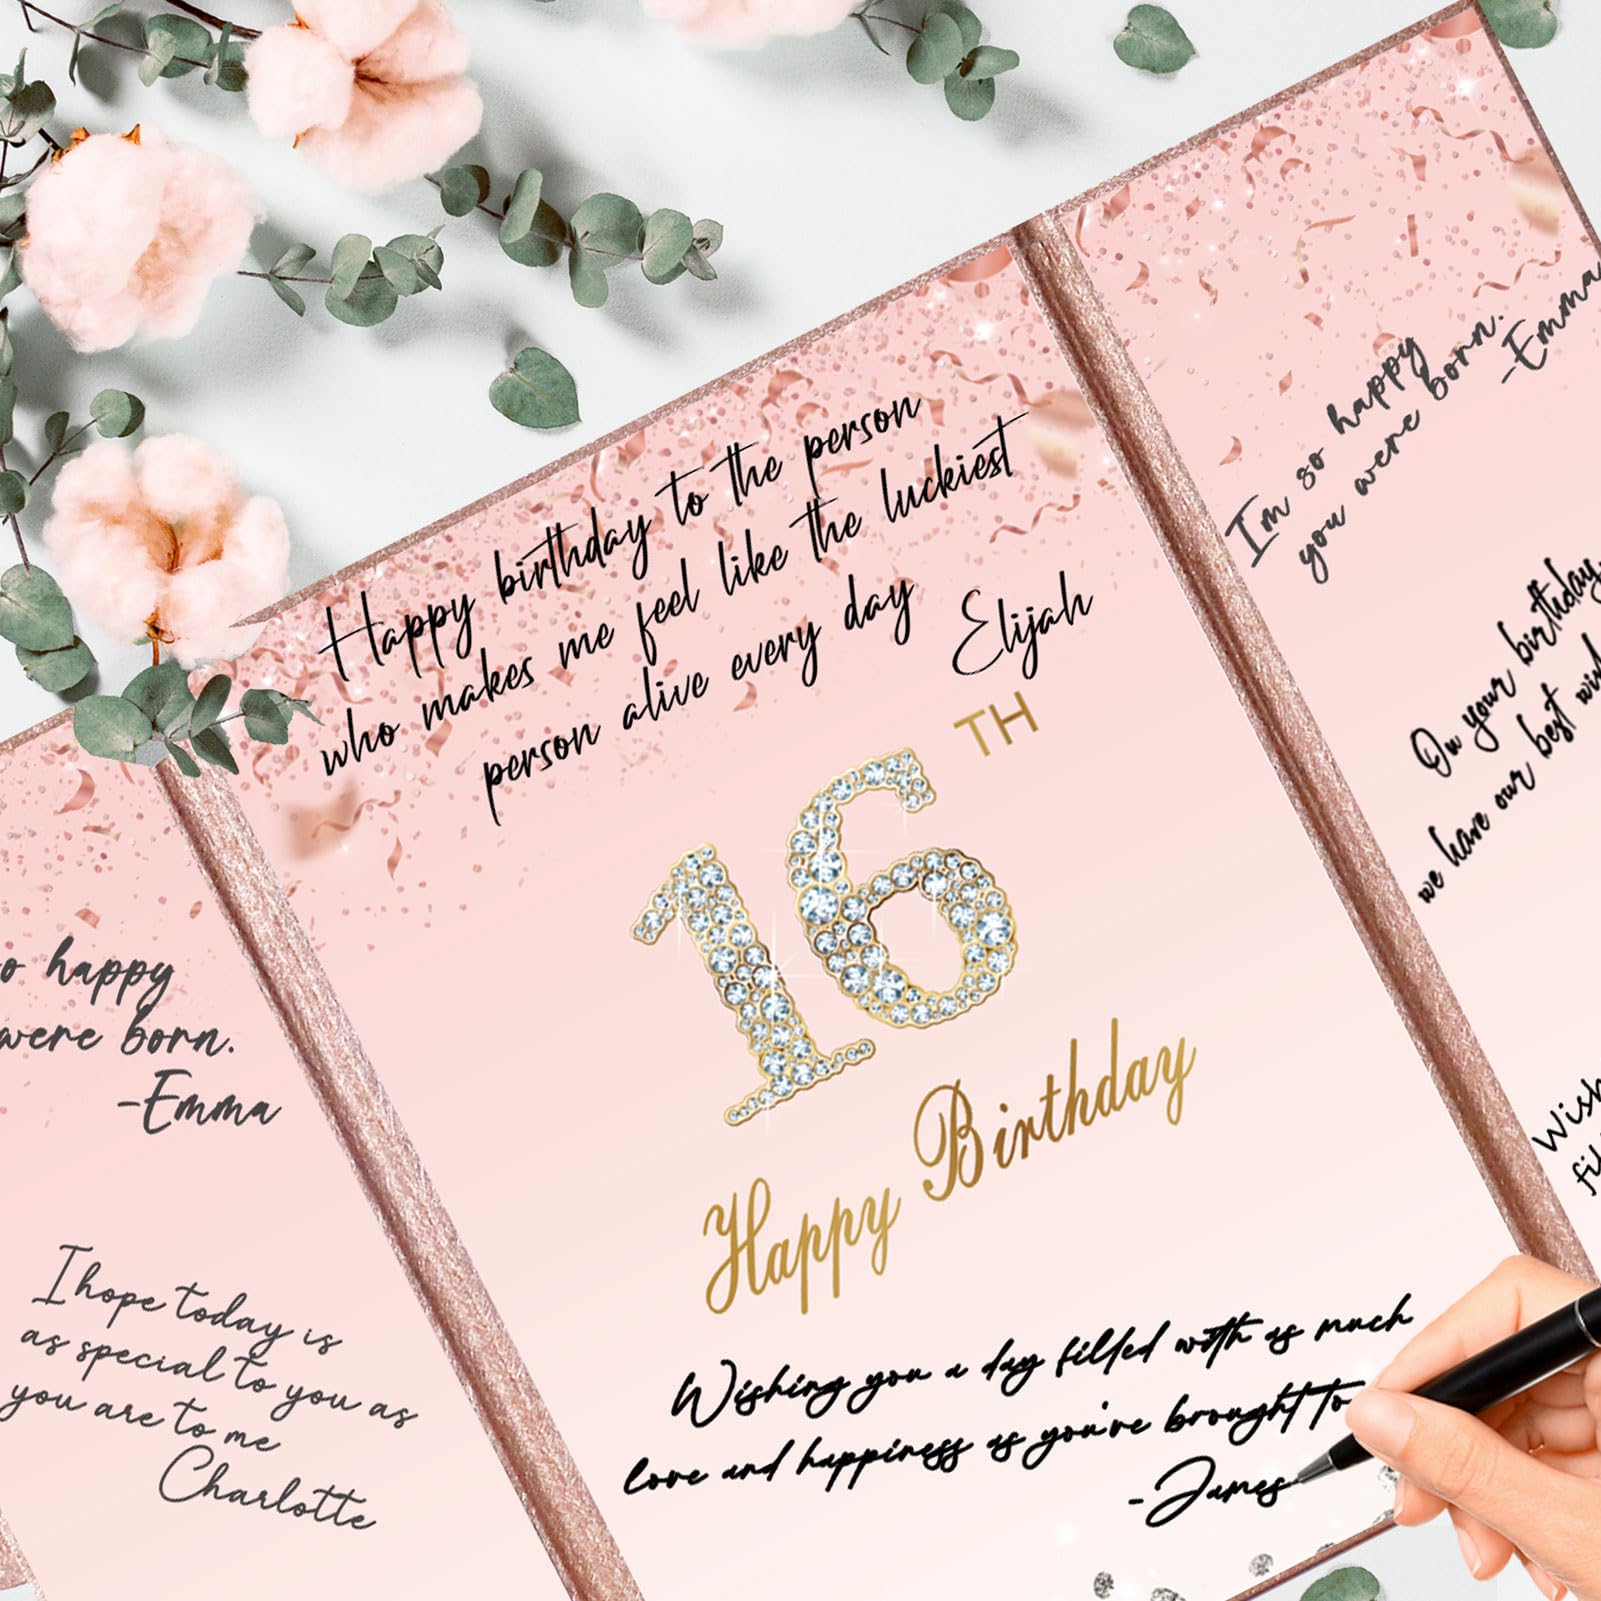 Happy birthday to the person
who makes me feel like the luckiest
person alive every day
Elijah
16TH
Happy Birthday
Wishing you a day filled with as much
love and happiness as you've brought to
-James
happy
were born.
-Emma
I hope today is
as special to you as
you are to me
Charlotte
I'm so happy
you were born.
-Emma
On your birthday,
we have our best